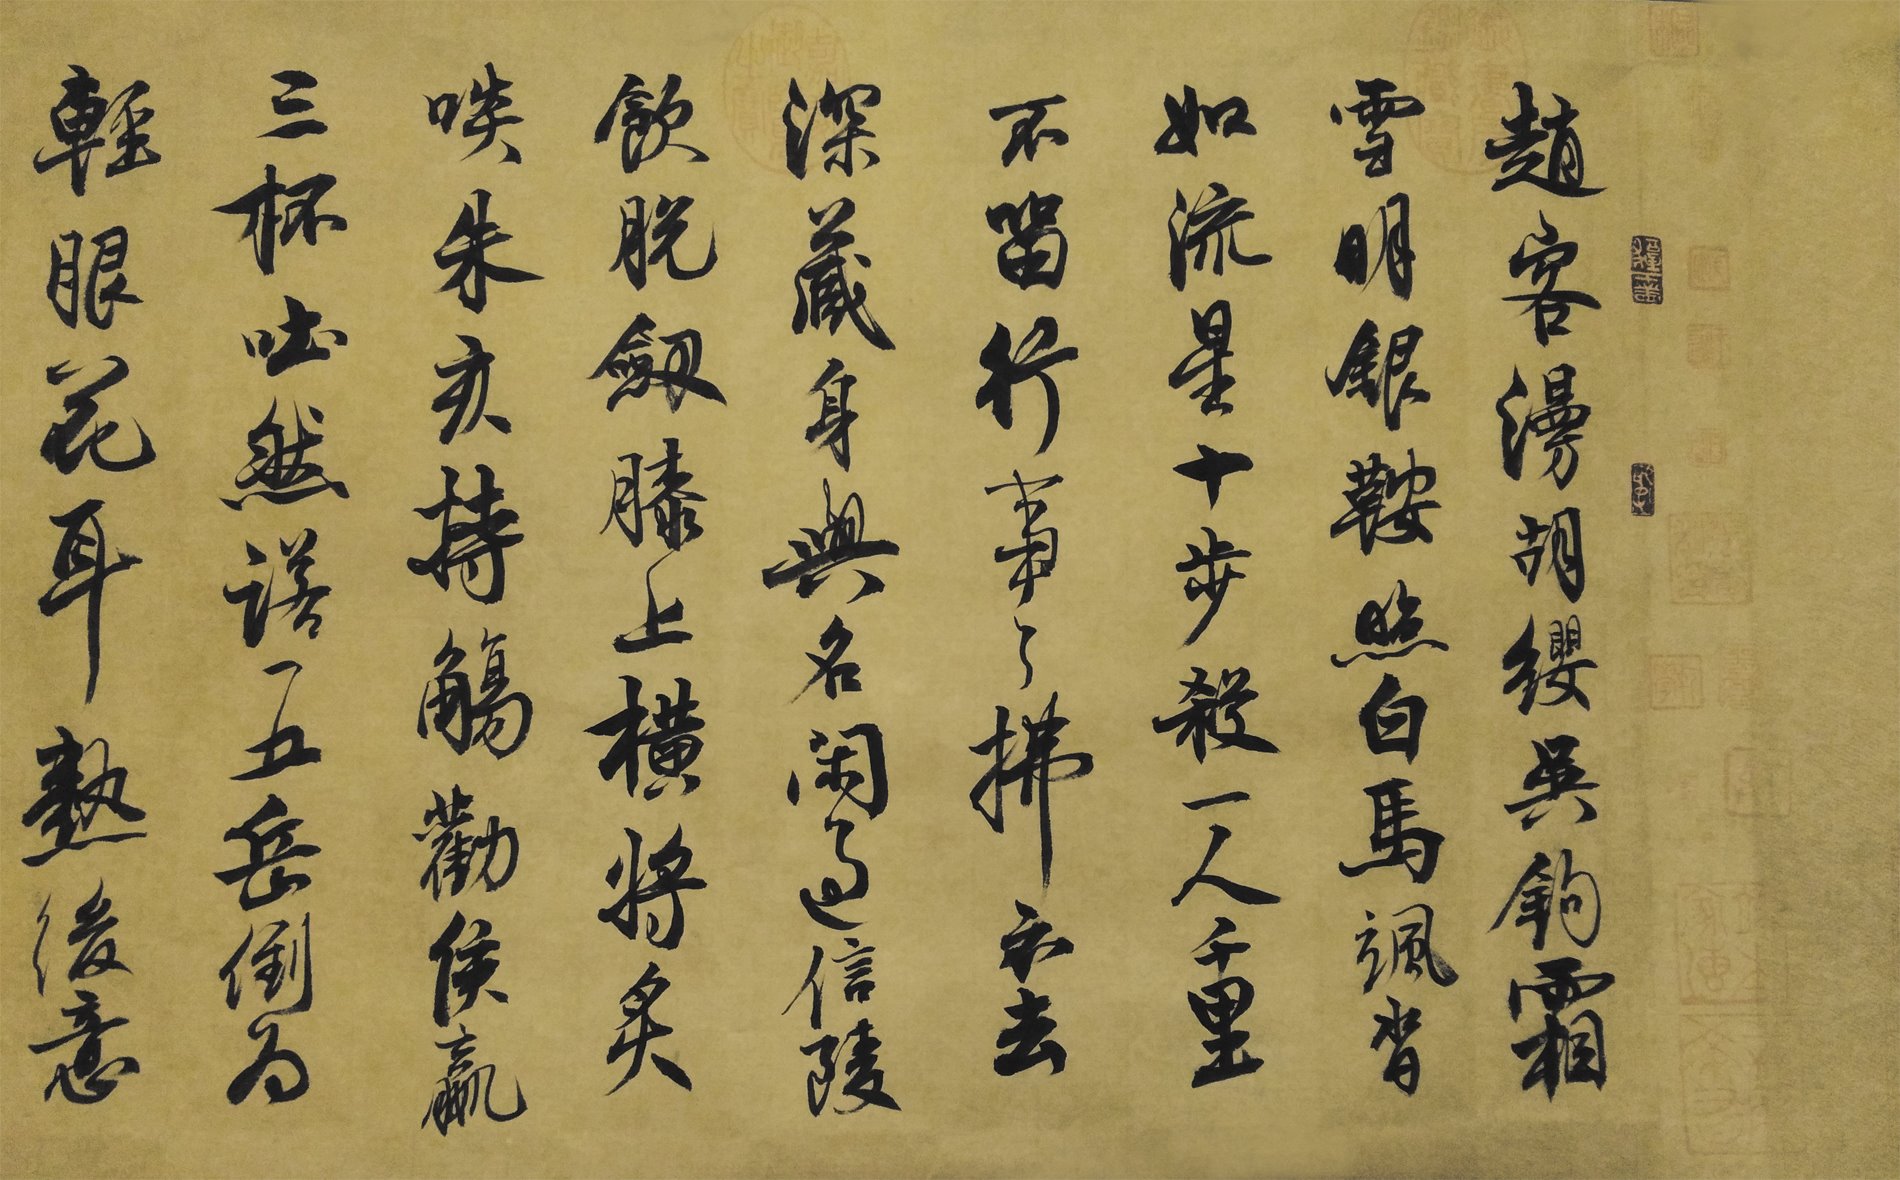 趙客漫胡纓吳鉤霜
雪明銀鞍照白馬颯沓
如流星十步殺一人千里
不留行事了拂衣去
深藏身與名閑過信陵
飲脫劍膝上橫將炙
啖朱亥持觴勸侯嬴
三杯吐然諾五岳倒為
輕眼花耳熱後意